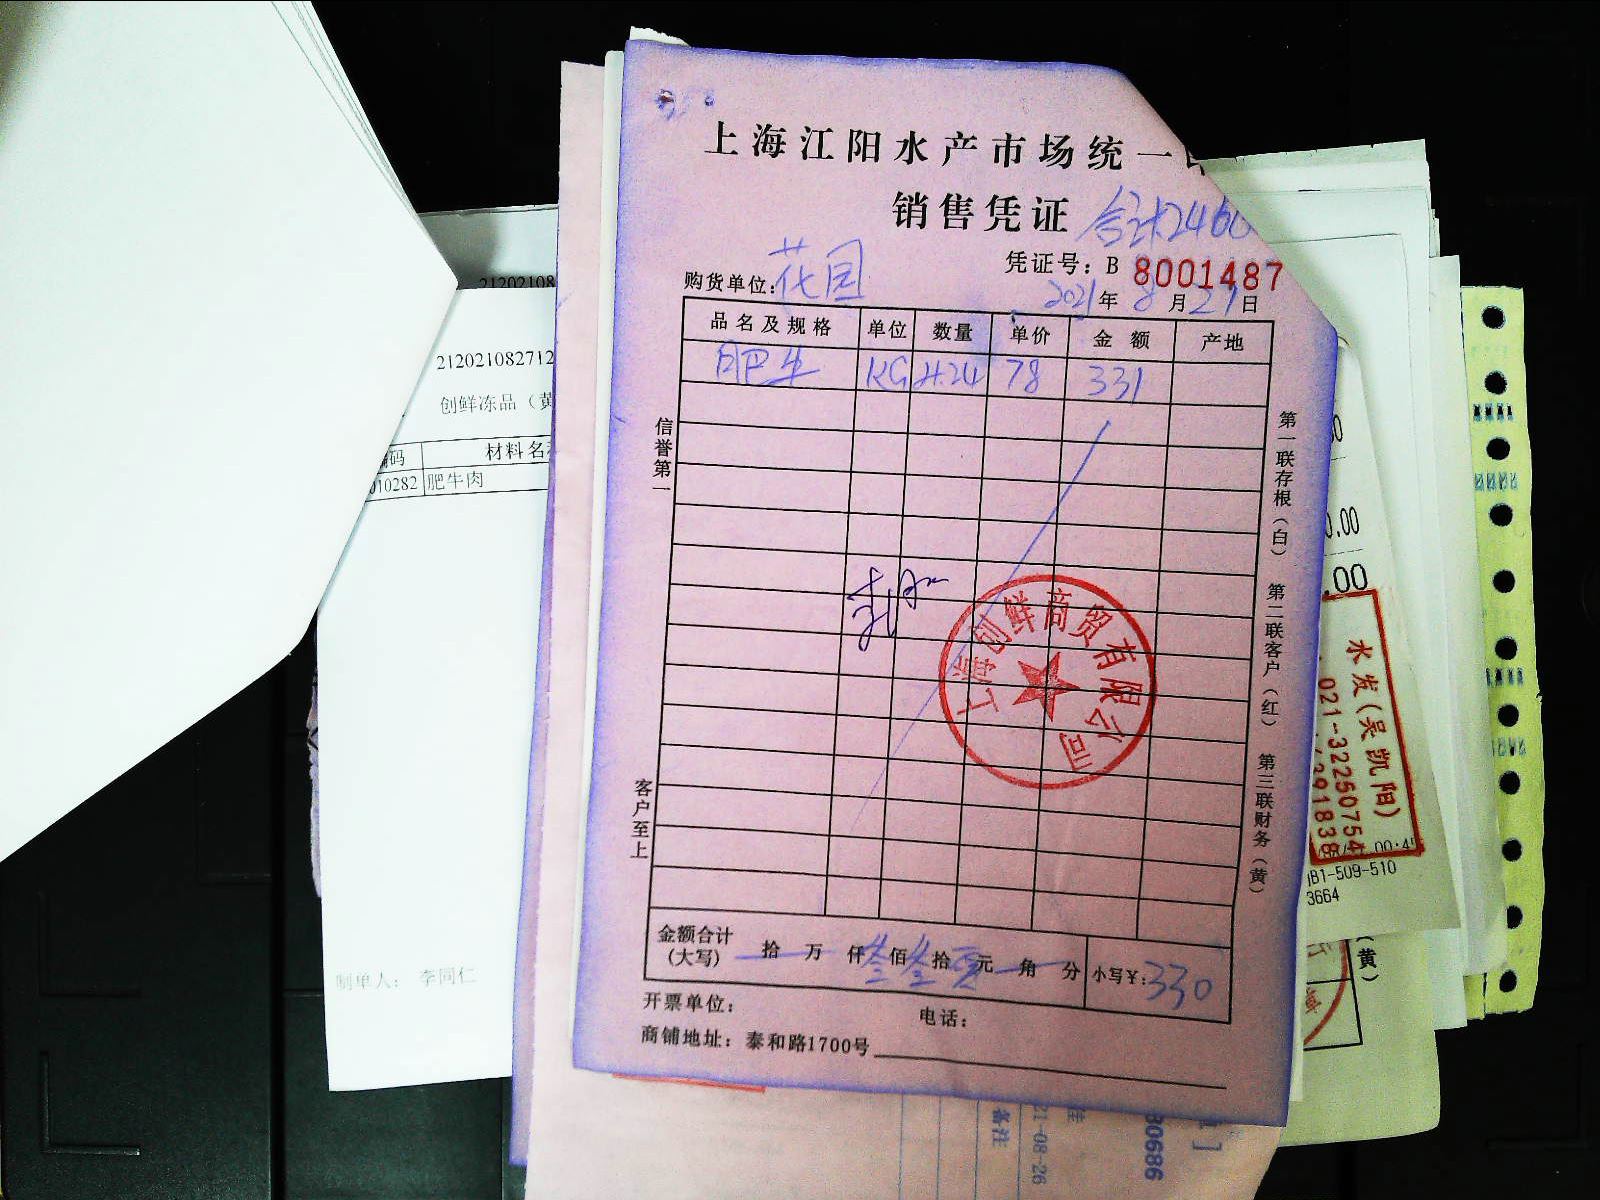 上海江阳水产市场统一
销售凭证 合计2460
凭证号：B 8001487
购货单位：花园 2021年8月27日
品名及规格 单位 数量 单价 金额 产地
肥牛 KG 4.24 78 331
信誉第一
客户至上
第一联存根（白） 第二联客户（红） 第三联财务（黄）
上海创鲜商贸有限公司
金额合计（大写） 拾 万 仟 叁佰叁拾 元 角 分 小写￥：330
开票单位： 电话：
商铺地址：泰和路1700号
21202108
212021082712
创鲜冻品（黄
编码 材料名
010282 肥牛肉
制单人： 李同仁
0.00
.00
水发(吴凯阳)
021-32250754
391838
00:4
B1-509-510
3664
(黄)
备注
21-08-26
80686